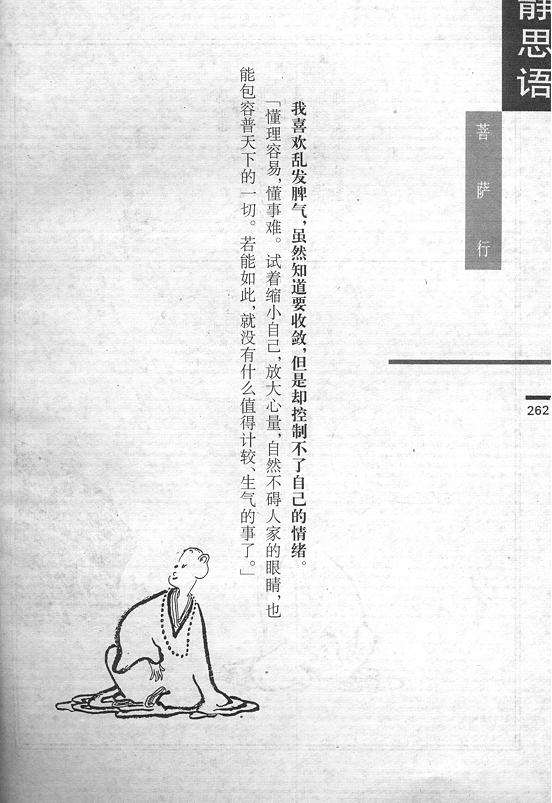 静思语
菩萨行
262
我喜欢乱发脾气,虽然知道要收敛,但是却控制不了自己的情绪。
「懂理容易,懂事难。试着缩小自己,放大心量,自然不碍人家的眼睛,也
能包容普天下的一切。若能如此,就没有什么值得计较、生气的事了。」